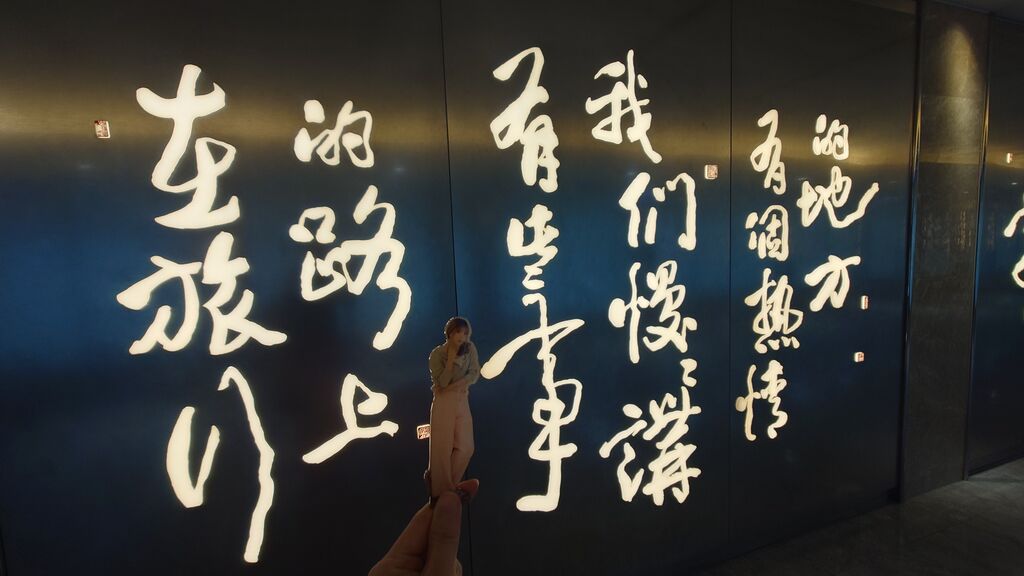 在旅行
的路上
有些事
我们慢々講
有個熱情
的地方